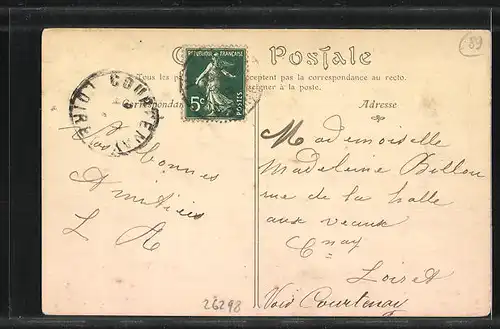 89
C Postale
Tous les pa acceptent pas la correspondance au recto.
seigner à la poste.
Correspondan
Adresse
REPUBLIQUE FRANÇAISE
5c
POSTES
COURTENAY
LOIRET
Bonnes
Amitiés
L A
Mademoiselle
Madeleine Billon
rue de la halle
aux veaux
Loiret
Voie Courtenay
26298